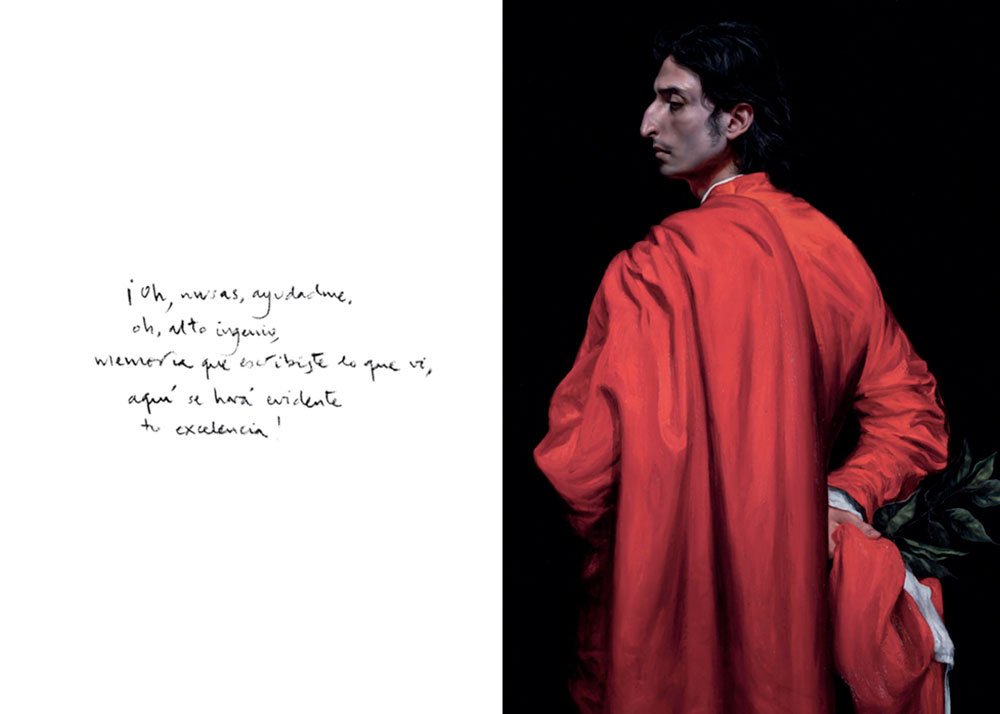 ¡Oh, musas, ayudadme,
oh, alto ingenio,
memoria que escribiste lo que vi,
aquí se hará evidente
tu excelencia!